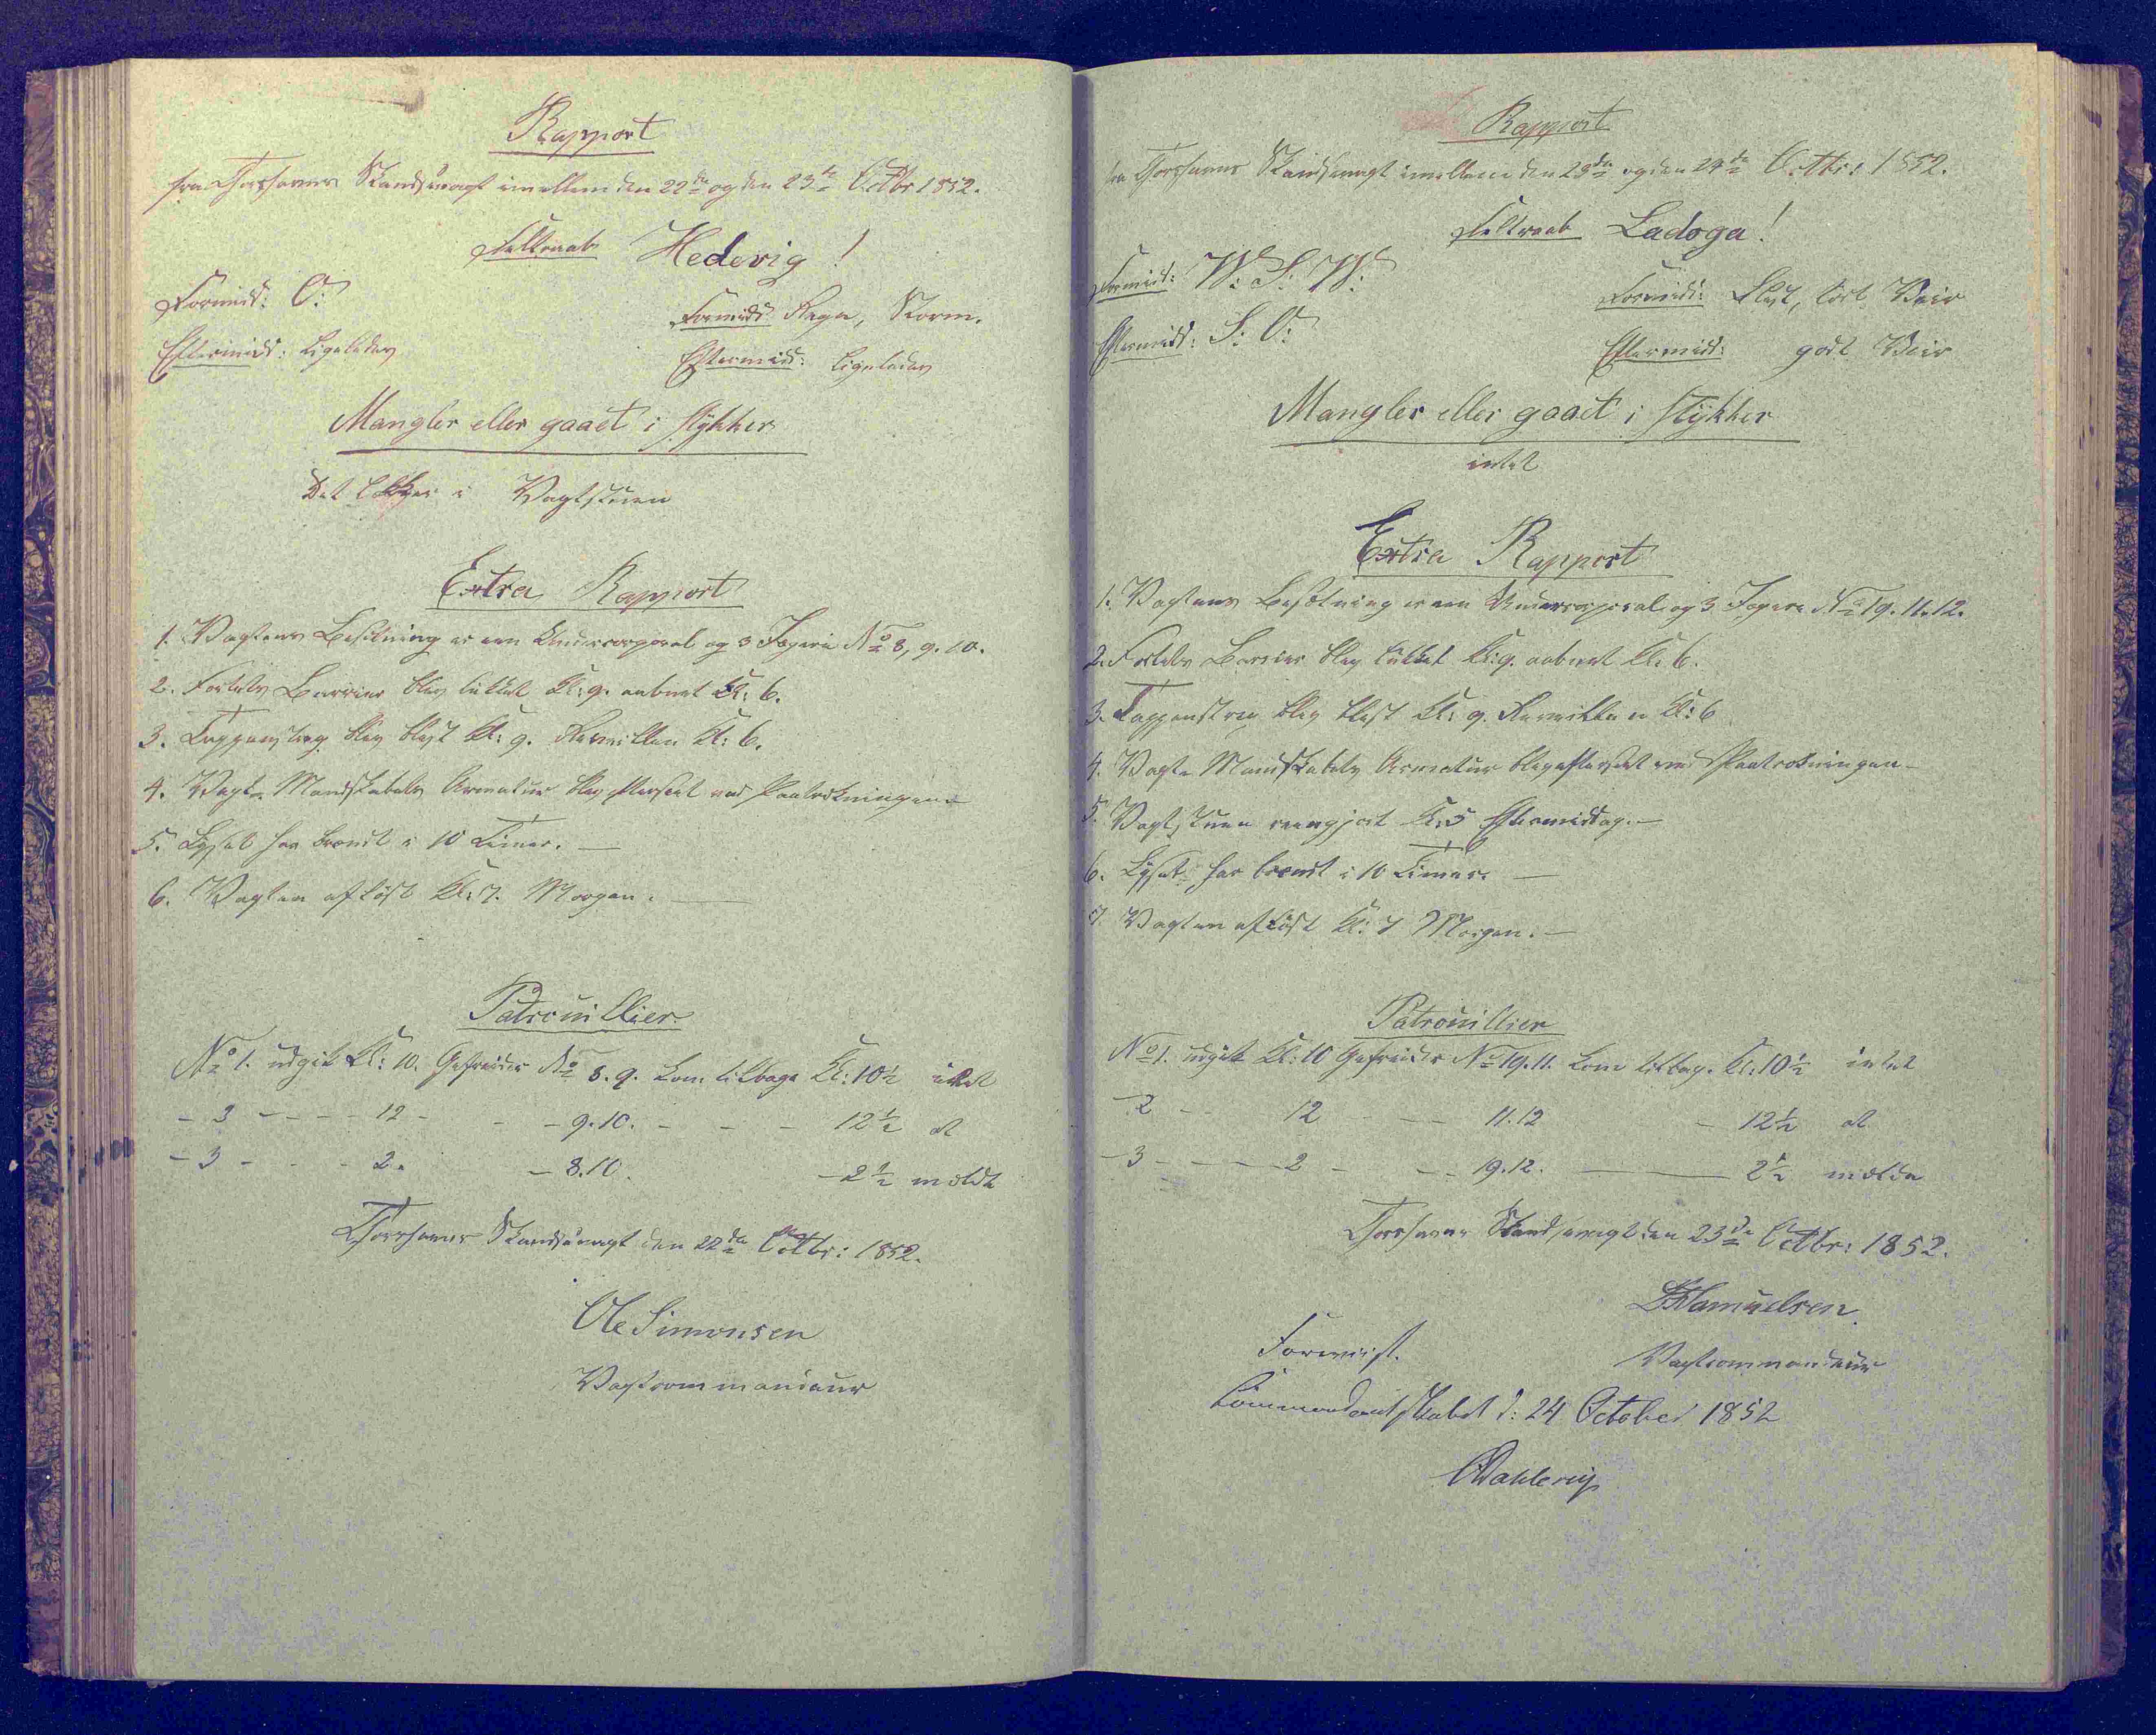 Rapport
fra Thorshavns Skandsevagt imellem den 22de og den 23de Octbr 1852.
Feltraab Hedevig!
Formid: O:
Formidd Regn, Storm.
Eftermidd: Ligeledes
Eftermidd: Ligeledes
Mangler eller gaaet i stykker
Det i Vagtstuen
Extra Rapport
1. Vagtens Besætning er een Undercorporal og 3 Jægere No 8, 9. 10.
2. Fortets Barriere blev lukket Kl: 9. aabnet Kl: 6.
3. Tappenstreg blev blæst Kl: 9. Reveillen Kl: 6.
4. Vagt Mandskabets Armatur blev efterseet ved Paatrækningen
5. Lyset har brændt i 10 Timer. —
6. Vagten afløst Kl: 7. Morgen. —
Patrouillier
No 1. udgik Kl: 10. Gefreider No 8. 9. kom tilbage Kl: 10½ intet
- 3 - - - - 12 - - - 9. 10. - - - 12½ at
- 3 - - - 2. - 8. 10. - 2½ melde
Thorshavns Skandsevagt den 22de Octbr: 1852.
Ole Simonsen
Vagtcommandeur
Rapport
fra Thorshavns Skandsevagt imellem den 23de og den 24de Octbr: 1852.
Feltraab Ladoga!
Formidd: W: S: W:
Formidd: Blæst, tört Veir
Eftermidd: S: O:
Eftermidd: godt Veir
Mangler eller gaaet i stykker
intet
Extra Rapport
1. Vagtens Besætning er een Undercorporal og 3 Jægere No 19. 11. 12.
2. Fortets Barriere blev lukket Kl: 9. aabnet Kl: 6.
3. Tappenstreg blev blæst Kl: 9. Reveillen Kl: 6
4. Vagt Mandskabets Armatur blev efterseet ved Paatrækningen -
5. Vagtstuen reengjort Kl: 5 Eftermiddag. —
6. Lyset har brændt i 10 Timer. —
7. Vagten afløst Kl: 7 Morgen. —
Patrouillier
No 1. udgik Kl: 10 Gefreider No 19. 11. kom tilbag. Kl: 10½ intet
- 2 - - 12 - - - 11. 12 - 12½ at
- 3 - - - - 2 - - - 19. 12. — 2½ melde
Thorshavns Skandsevagt den 23de Octbr: 1852.
Samuelsen
Vagtcommandeur
Foreviist.
Commandantskabet d: 24 October 1852
Dahlerup